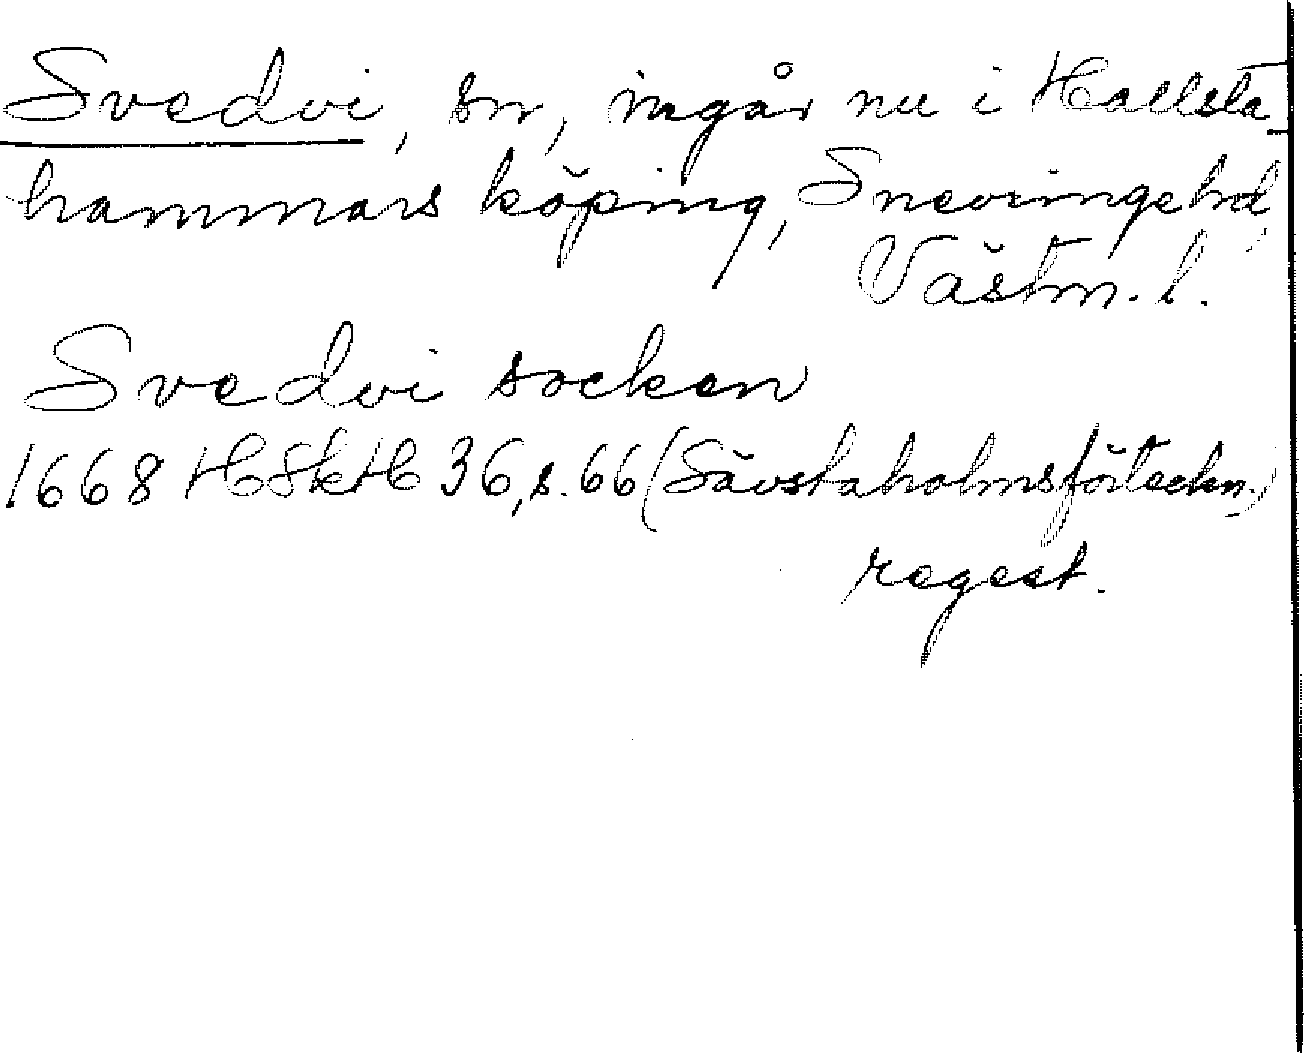 Svedvi, sn, ingår nu i Hallsta-
hammars köping, Snevringe hd,
Västm. l.
Svedvi socken
1668 HSkH 36, s. 66 (Sävstaholmsförteckn.)
regest.